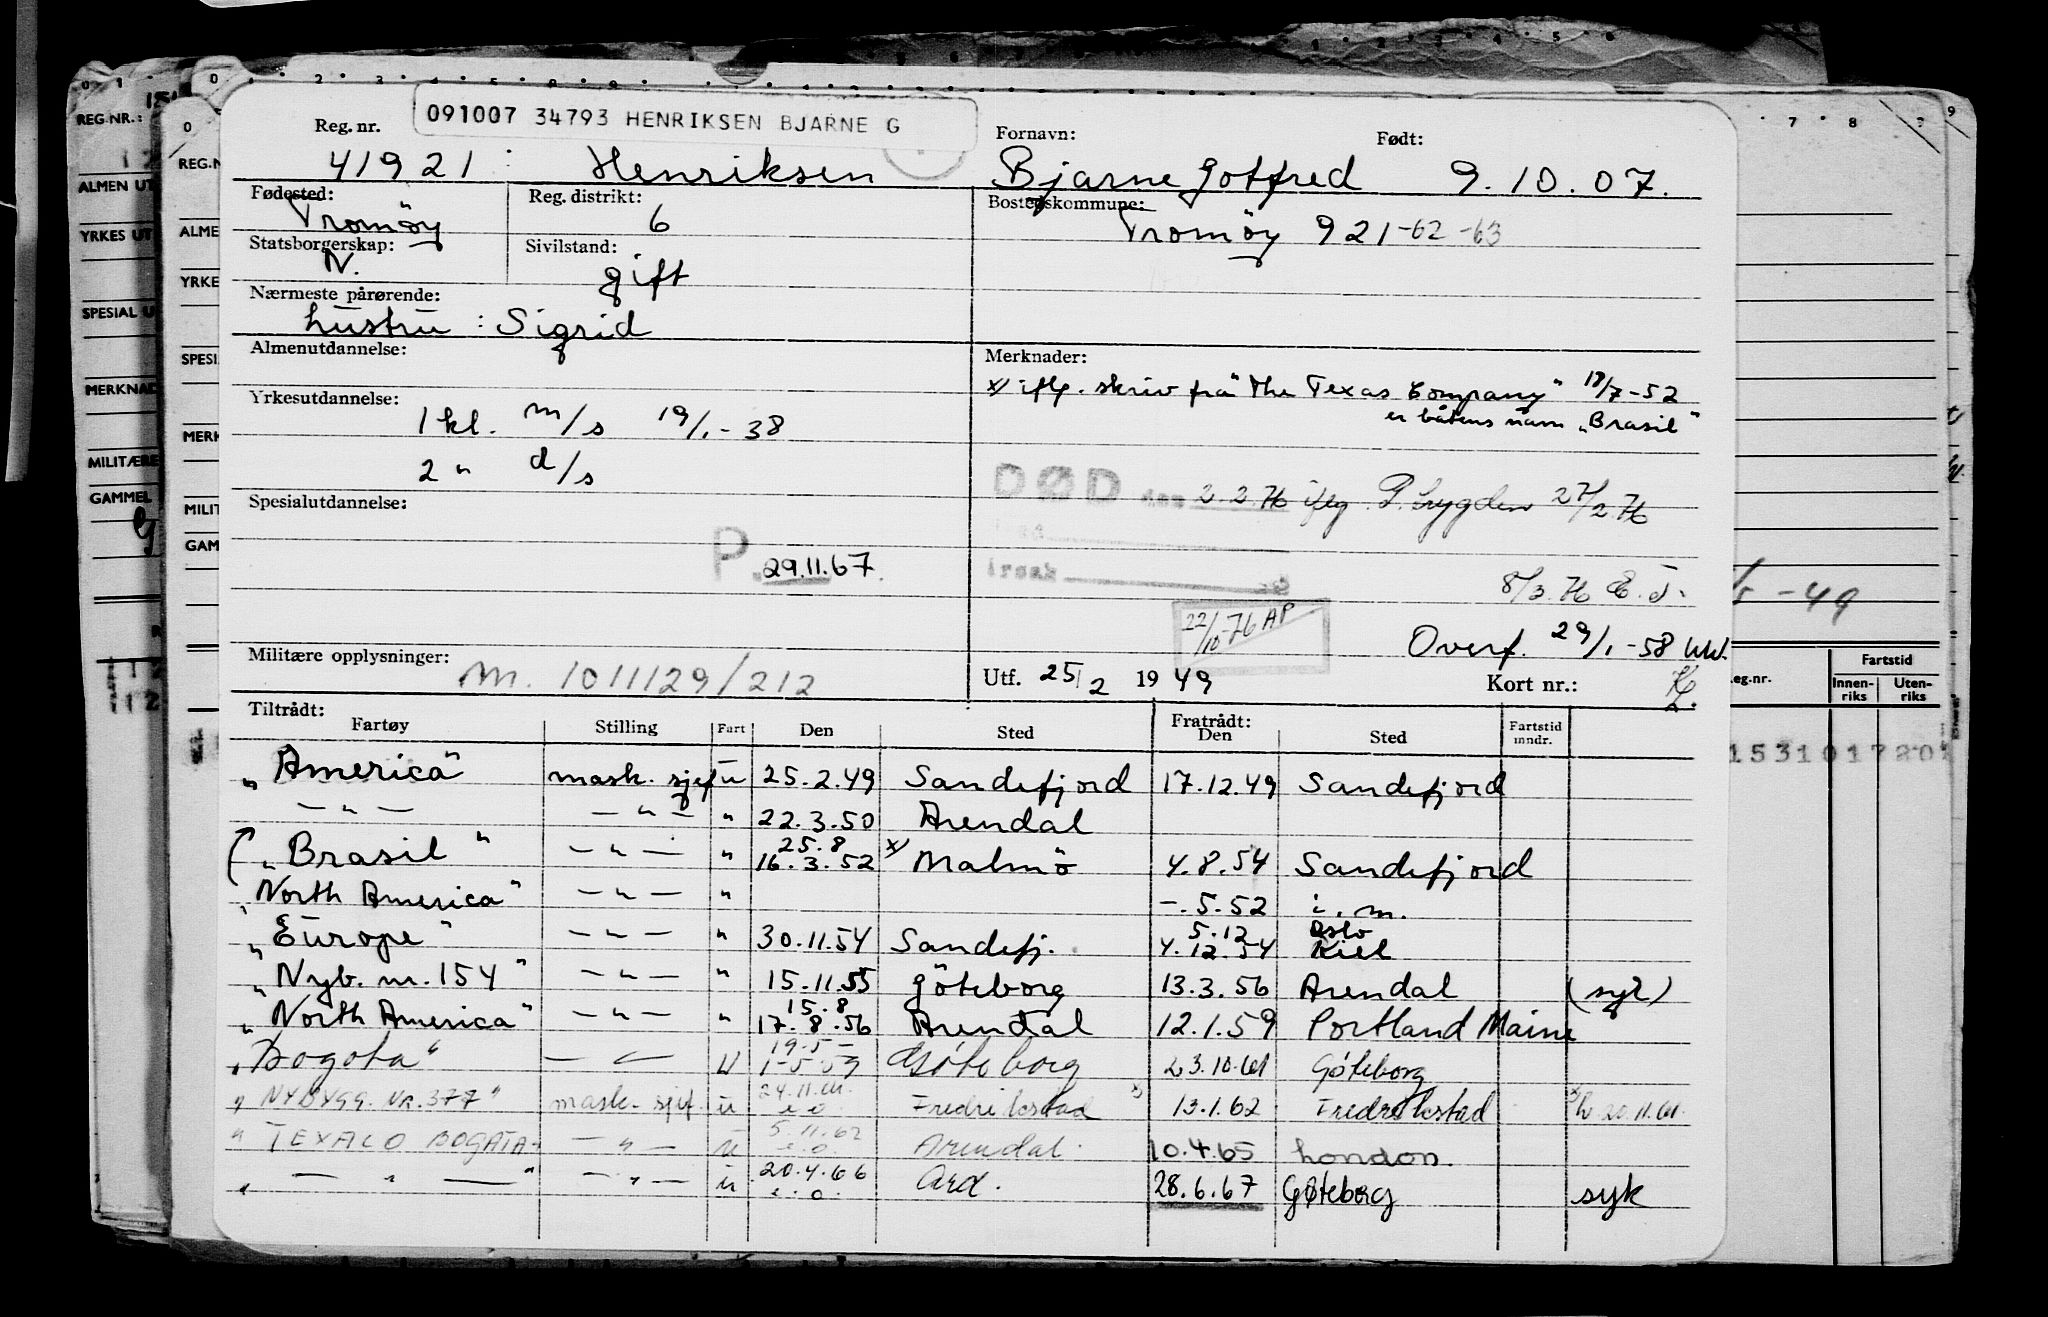 091007 34793 HENRIKSEN BJARNE G
Reg. nr. Fornavn: Født:
41921 Henriksen Bjarne Gotfred 9.10.07.
Fødested: Reg. distrikt: Bostedskommune:
Tromöy 6 Tromöy 921-62-63
Statsborgerskap: Sivilstand:
N. gift
Nærmeste pårørende:
hustru : Sigrid
Almenutdannelse: Merknader:
x) iflg. skriv frå "The Texas Company" 18/7-52
er båtens navn "Brasil"
Yrkesutdannelse:
1 kl. m/s 19/1-38
2 " d/s
DØD den 2.2.76 iflg. P. trygden 27/2.76
Spesialutdannelse:
P. 29.11.67.
årsak
8/3.76 E.J.
22/10-76 AP
Overf. 29/1-58
Militære opplysninger:
m. 1011129/212
Utf. 25/2 1949 Kort nr.: 2.
Tiltrådt: Fratrådt:
Fartøy Stilling Fart Den Sted Den Sted Fartstid inndr.
"America" mask. sjef u 25.2.49 Sandefjord 17.12.49 Sandefjord
— " — — " — " 22.3.50 Arendal
"Brasil" — " — " 25.8 16.3.52 x) Malmö 4.8.54 Sandefjord
"North America" — " — " -.5.52 i.m.
"Europe" — " — " 30.11.54 Sandefj. 5.12 Oslo 4.12.54 Kiel
"Nyb. nr. 154" — " — " 15.11.55 Göteborg 13.3.56 Arendal (syk)
"North America" — " — " 15.8 17.8.56 Arendal 12.1.59 Portland Maine
"Bogota" — " — U 19.5- 1-5-59 Göteborg 23.10.61 Göteborg
"NYBYGG. NR. 377" mask. sjef. u 24.11.61. e.o. Fredrikstad x) 13.1.62 Fredrikstad 20.11.61.
"TEXACO BOGATA" — " — u 5.11.62 e.o. Arendal. 10.4.65 London.
" — " — " — " — u 20.4.66 e.o. Ard. 28.6.67 Göteborg syk
REG.NR.:
ALMEN UT
YRKES UT
SPESIAL U
MERKNAD
MILITÆRE
GAMMEL
REG.N
ALME
YRKE
SPESI
MERK
MILIT
GAM
-49
eg.nr. Fartstid
Innenriks Utenriks